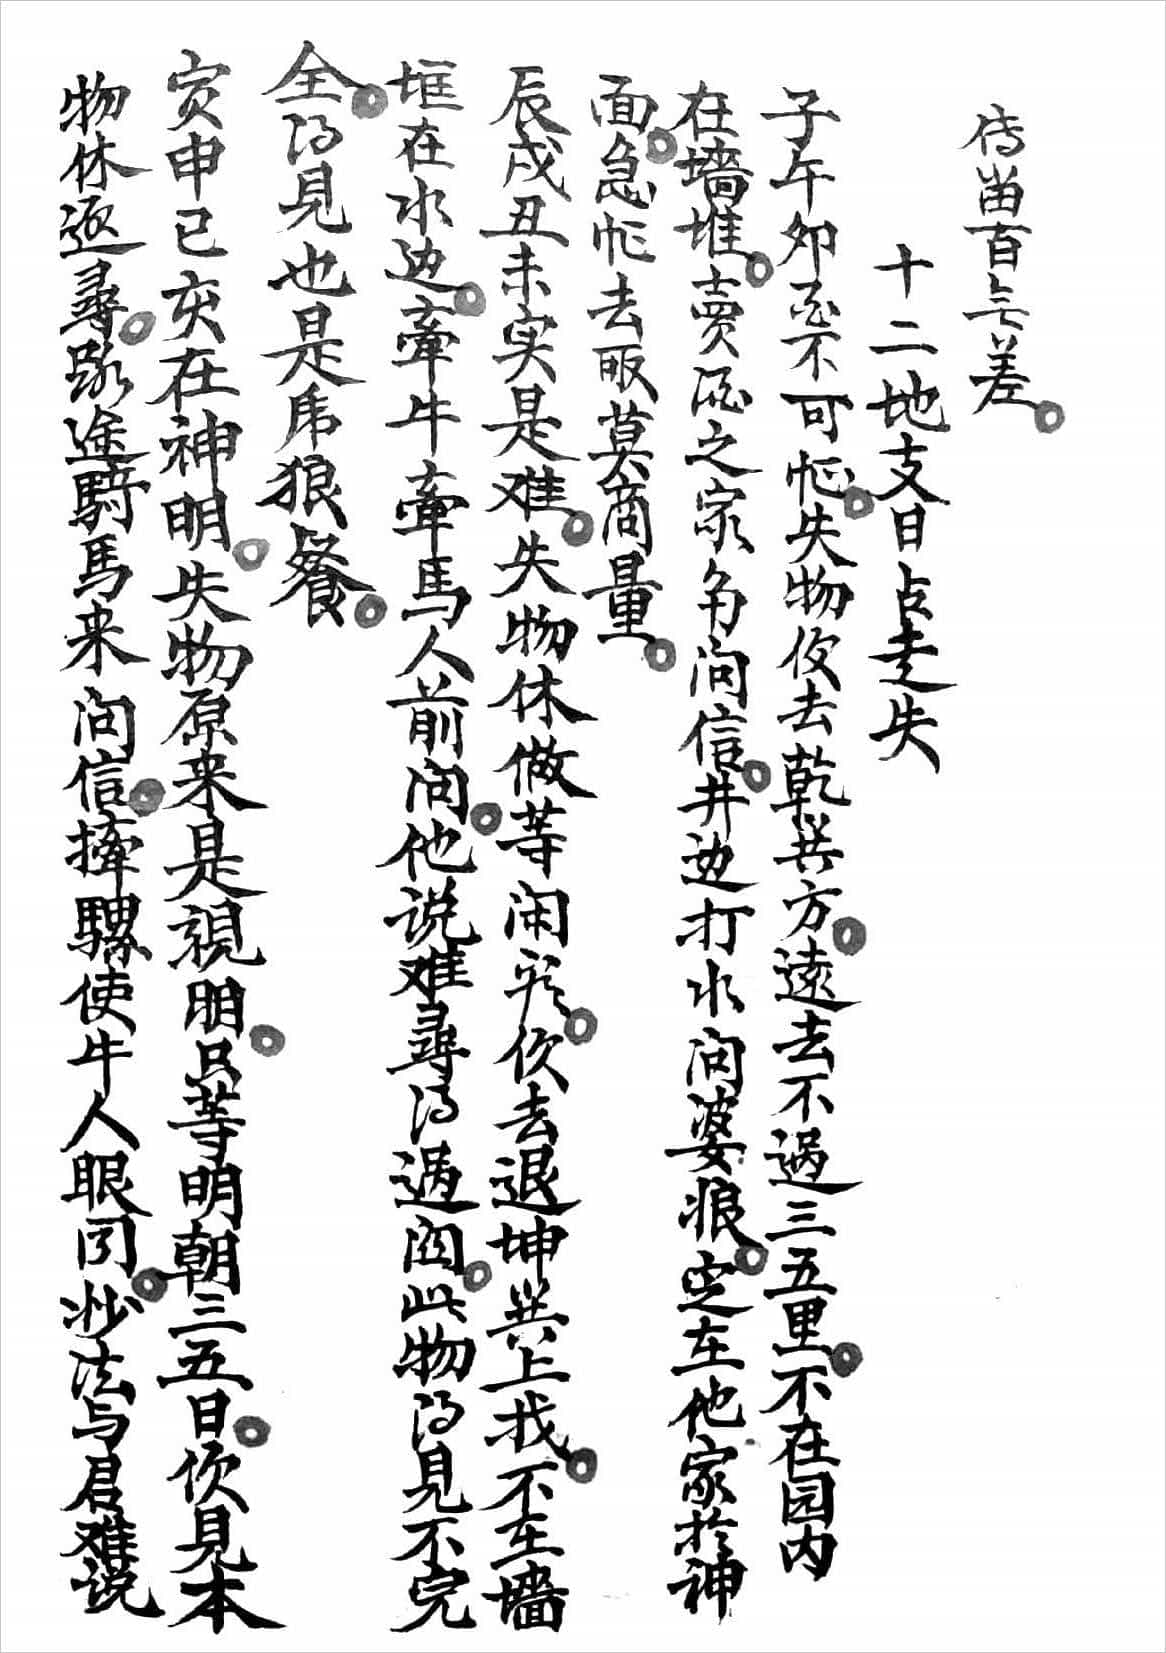 傳留百無差
十二地支日占走失
子午卯酉不可忙失物仅去乾兑方遠去不過三五里不在园内
在墻堆賣酒之家多问信井边打水问婆娘定在他家於神
面急忙去取莫商量
辰戌丑未实是难失物休做等闲求仅去退坤巽上找不在墻
框在水边牽牛牽馬人前问他说难尋得遇阎此物得見不完
全得見也是虎狼餐
寅申巳亥在神明失物原来是親朋只等明朝三五日仅見本
物休返尋路途騎馬来问信撵騾使牛人眼闭妙法与君难说